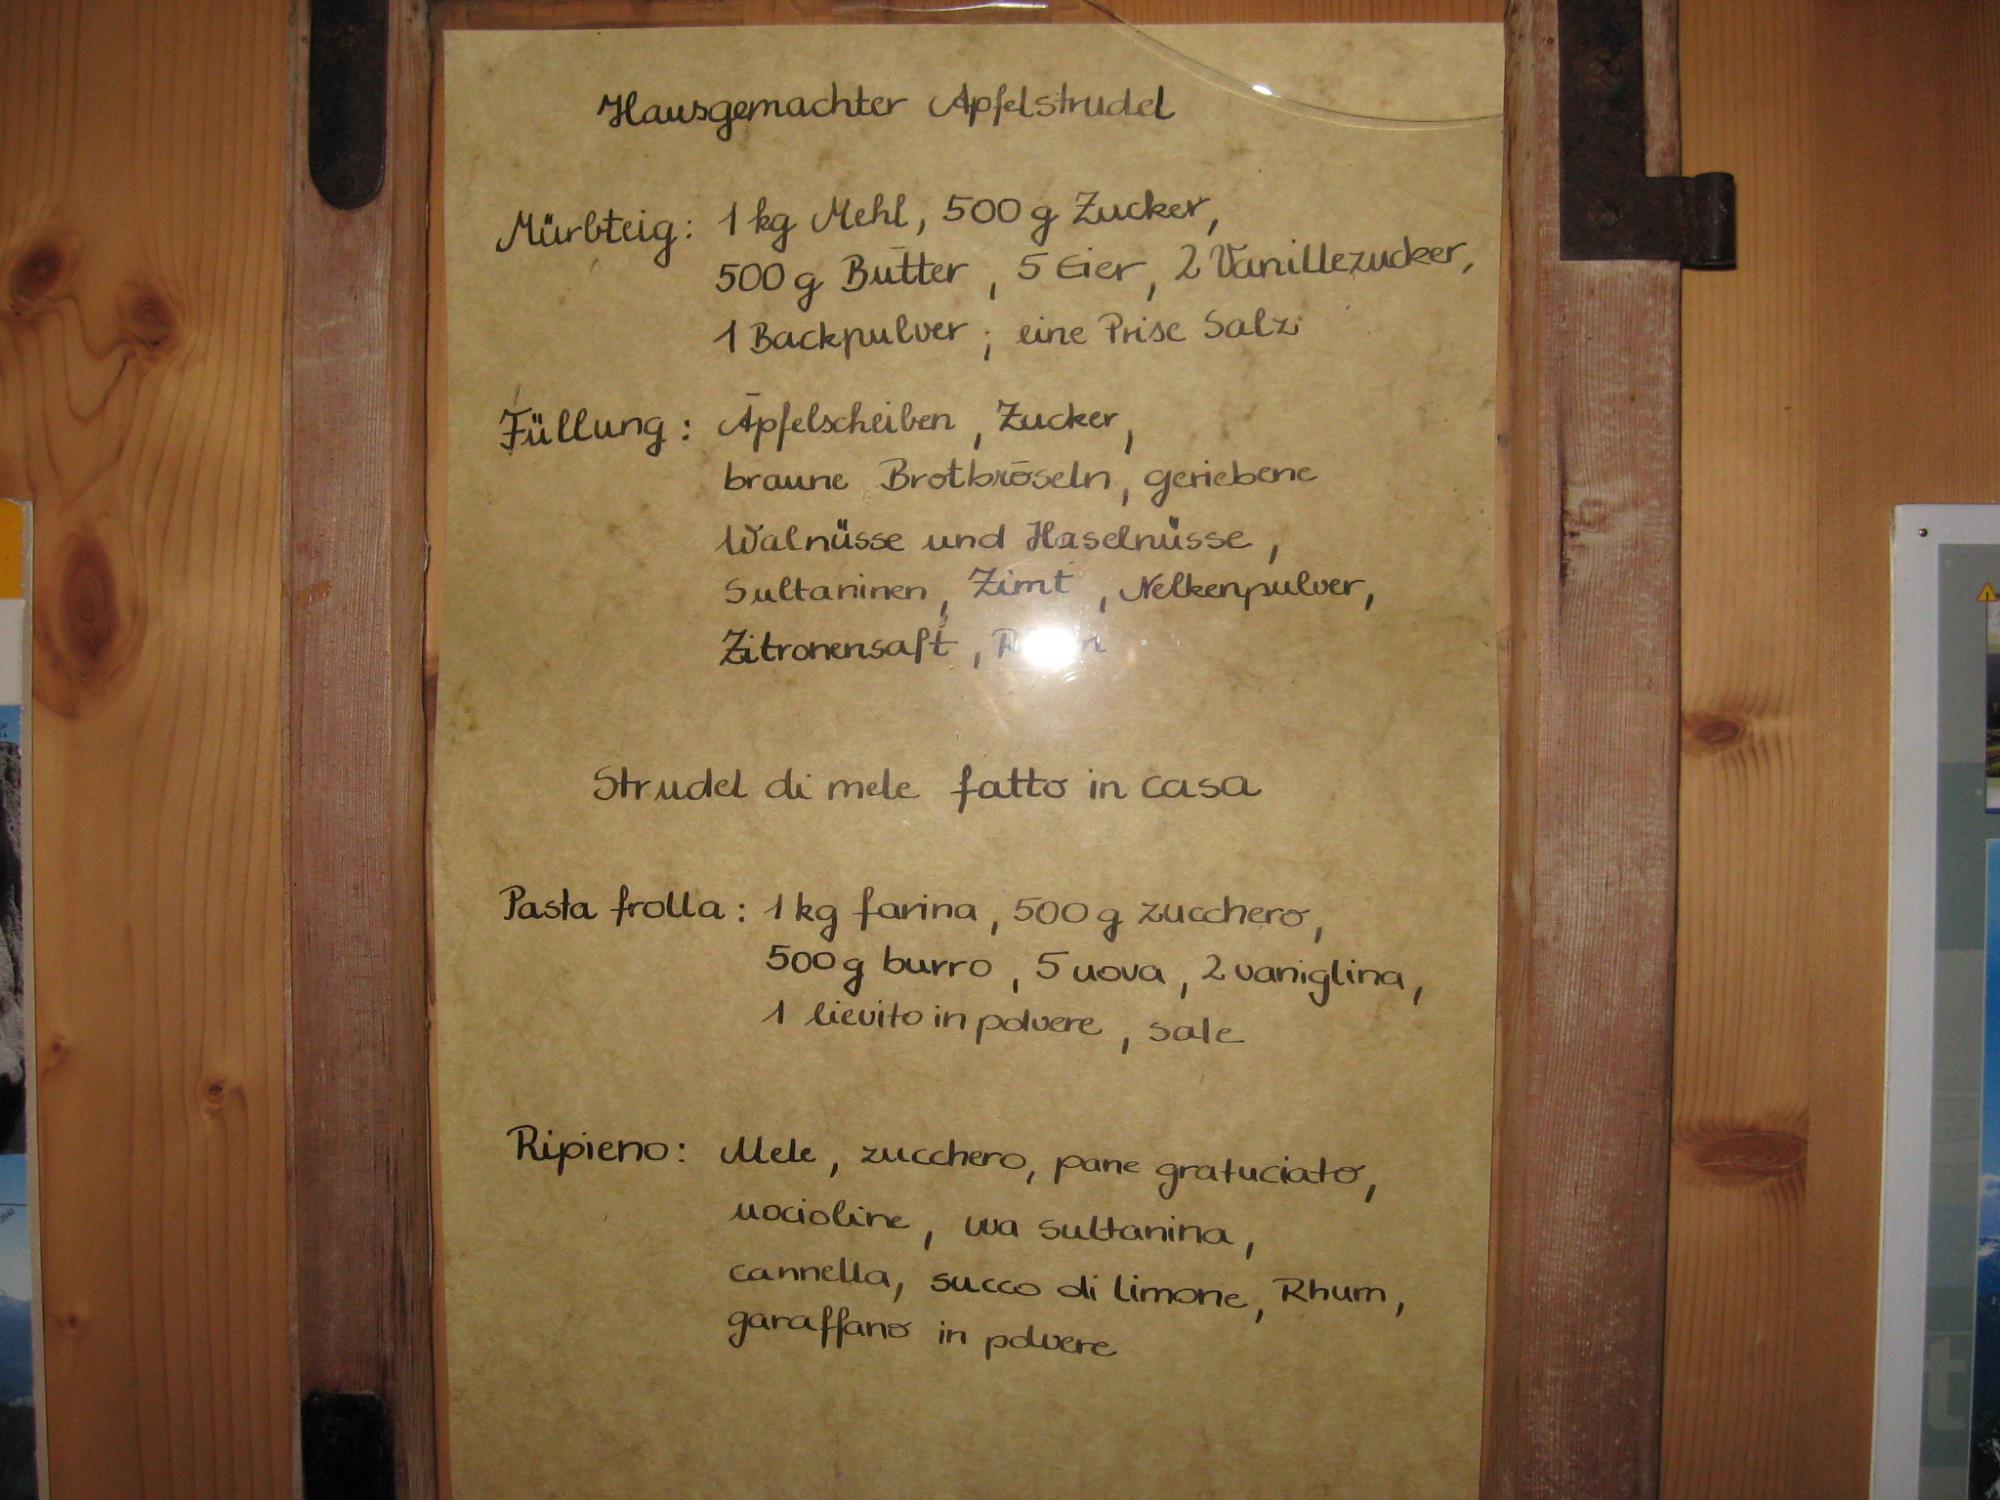 Hausgemachter Apfelstrudel
Mürbteig: 1 kg Mehl, 500 g Zucker,
500 g Butter, 5 Eier, 2 Vanillezucker,
1 Backpulver, eine Prise Salz
Füllung: Äpfelscheiben, Zucker,
braune Brotbröseln, geriebene
Walnüsse und Haselnüsse,
Sultaninen, Zimt, Nelkenpulver,
Zitronensaft,
Strudel di mele fatto in casa
Pasta frolla: 1 kg farina, 500 g zucchero,
500 g burro, 5 uova, 2 vaniglina,
1 lievito in polvere, sale
Ripieno: Mele, zucchero, pane gratuciato,
nocioline, uva sultanina,
cannella, succo di limone, Rhum,
garaffano in polvere